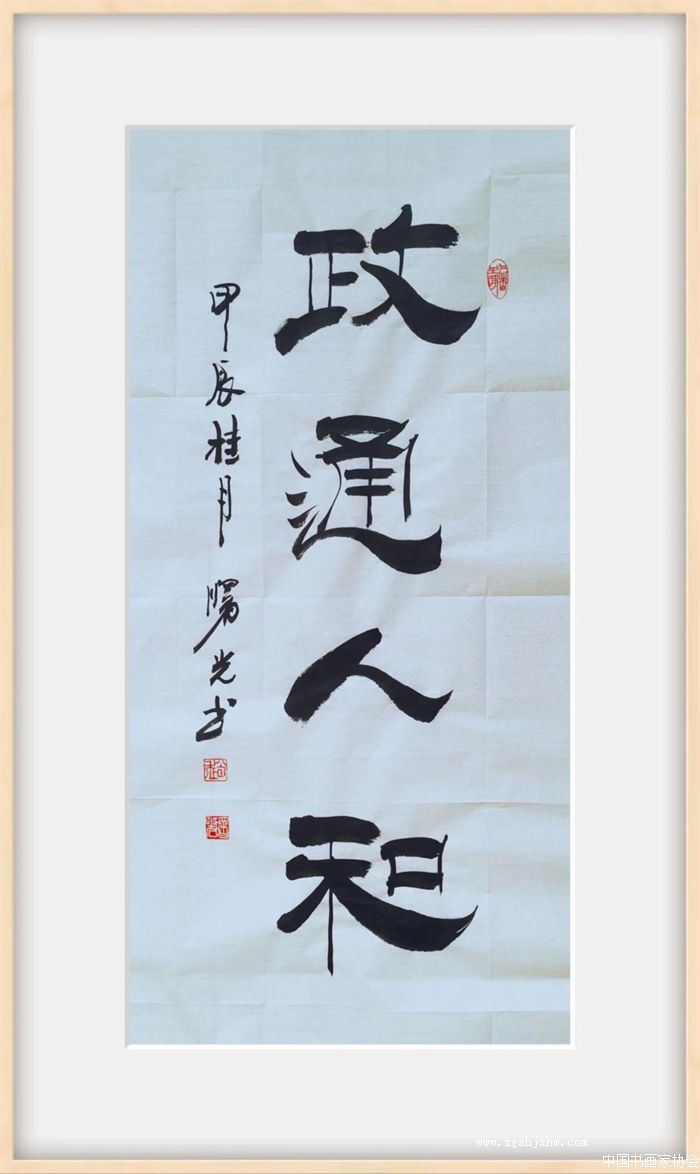 政通人和
甲辰桂月 曙光书
www.zgshjxhw.com
中国书画家协会